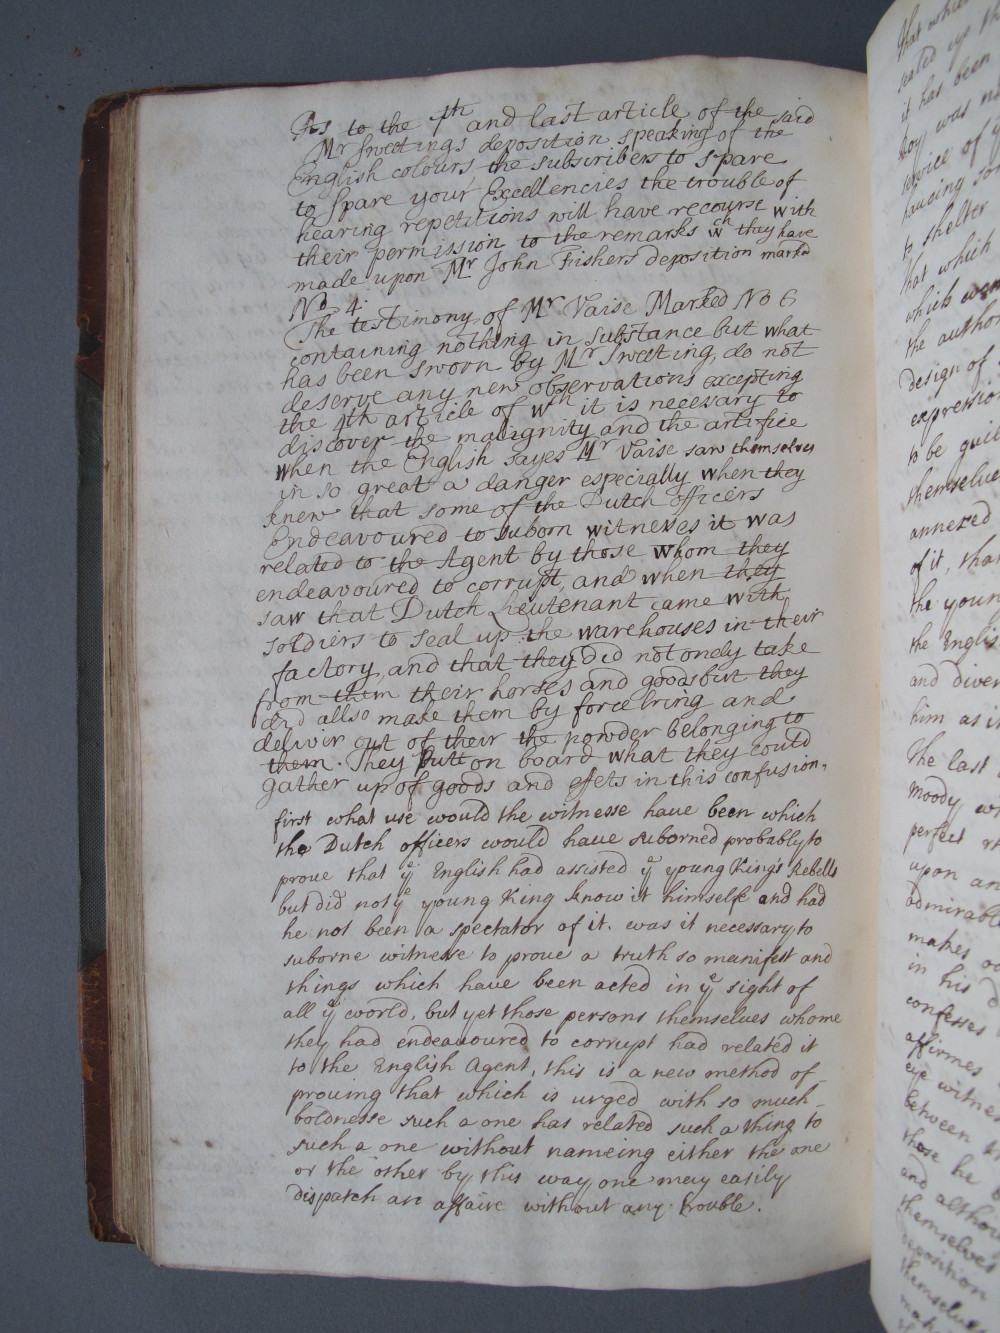 As to the 7th and last article of the said
Mr Sweetings deposition speaking of the
English colours the subscribers to spare
to spare your Excellencies the trouble of
hearing repetitions will have recourse with
their permission to the remarks wch they have
made upon Mr John Fishers deposition markd
No 4.
The testimony of Mr Vaise Marked No 6
containing nothing in substance but what
has been sworn by Mr Sweeting, do not
deserve any new observations excepting
the 7th article of wch it is necessary to
discover the malignity and the artifice
when the English sayes Mr Vaise saw themselves
in so great a danger especially when they
knew that some of the Dutch officers
Endeavoured to suborn witnesses it was
related to the Agent by those whom they
endeavoured to corrupt, and when they
saw that Dutch Lieutenant came with
soldiers to seal up the warehouses in their
factory, and that they did not onely take
from them their horses and goods but they
did allso make them by force bring and
deliver out of their the powder belonging to
them. They Putt on board what they could
gather up of goods and effets in this confusion,
first what use would the witnesse have been which
the Dutch officers would have suborned probably to
prove that ye English had assisted ye young King's Rebells
but did not ye young King know it himself and had
he not been a spectator of it. was it necessary to
suborne witnesse to prove a truth so manifest and
things which have been acted in ye sight of
all ye world, but yet those persons themselves whome
they had endeavoured to corrupt had related it
to the English Agent, this is a new method of
proving that which is urged with so much
boldnesse such a one has related such a thing to
such a one without nameing either the one
or the other by this way one may easily
dispatch are affaire without any trouble.
that which
sealed up
it has been
boy was
service of
to shelter
that which
which
the author
design of
expression
to be
themselves
annexed
of it, than
the young
the English
and
him as
The last
Moody
perfect
upon an
admirable
makes
in his
confesses
affirmes
eye
between
those he
and
themselves
deposition
themselves